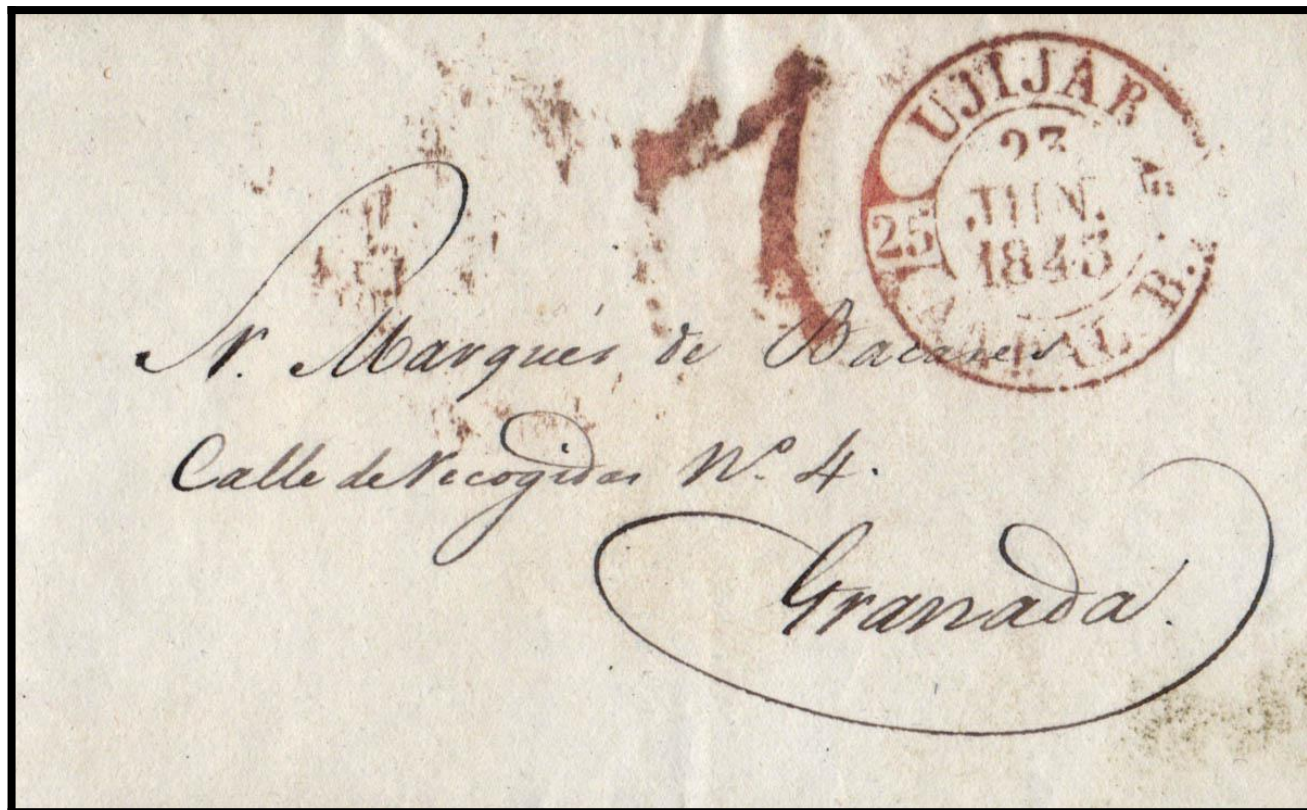 7
UJIJAR
25
23
JUN.
1843
B.
Sr. Marqués de Bacares
Calle de Recogidas Nº 4.
Granada.